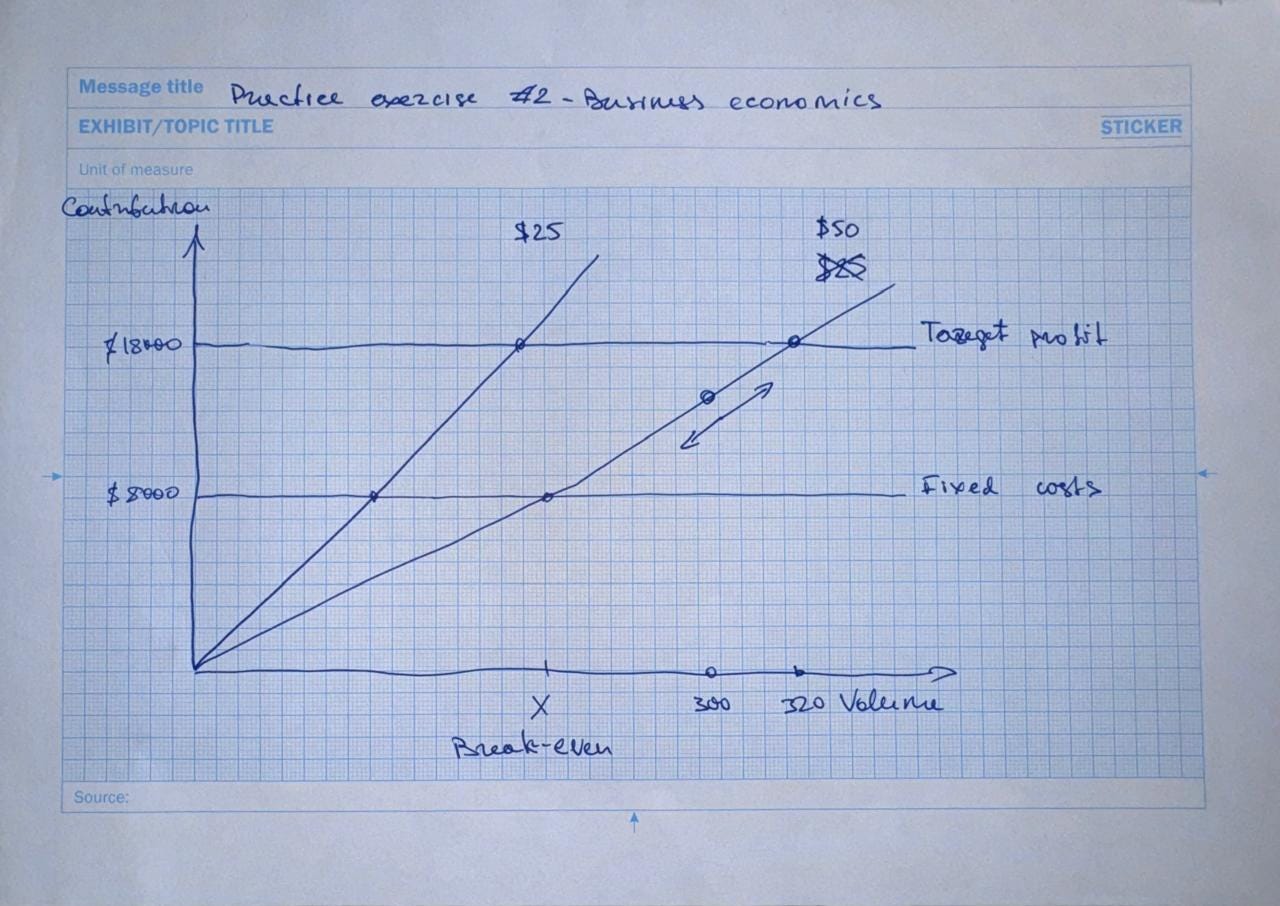 Message title Practice exercise #2 - Business economics
EXHIBIT/TOPIC TITLE STICKER
Unit of measure
Contribution
$25 $50
$25
$18000 Tareget profit
$8000 Fixed costs
X 300 320 Volume
Break-even
Source: